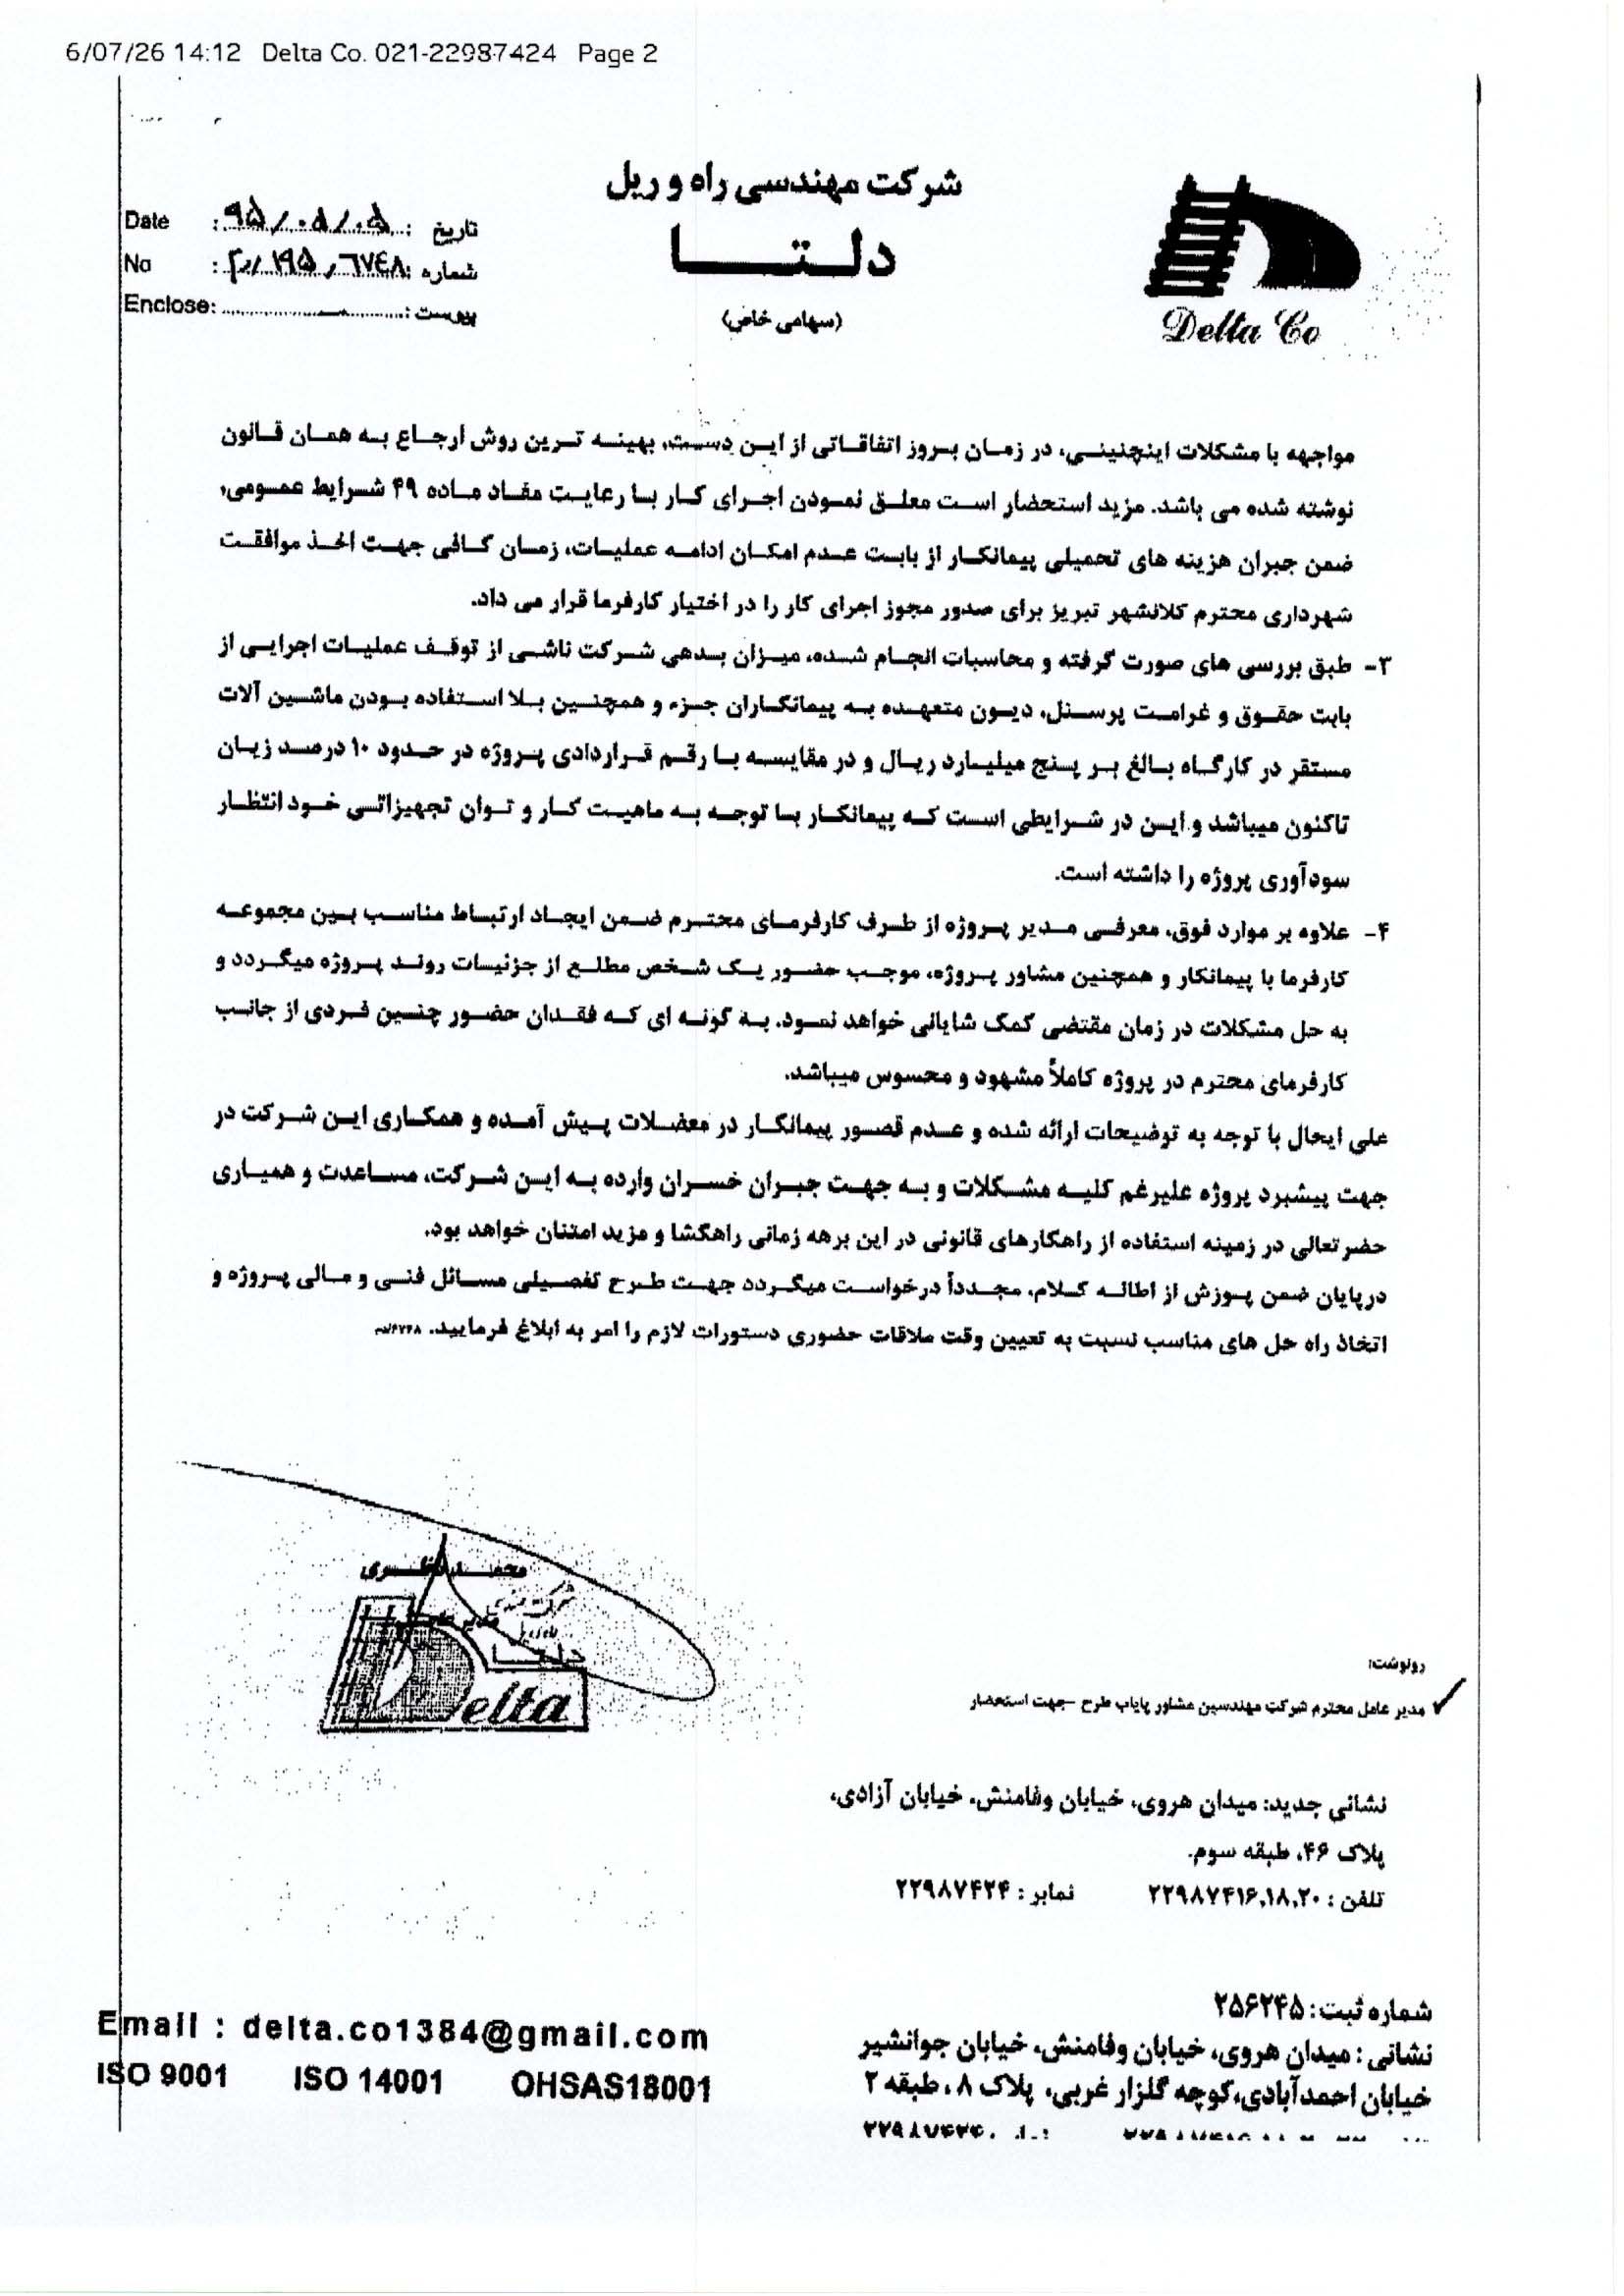 6/07/26 14:12 Delta Co. 021-22987424 Page 2
شرکت مهندسی راه و ریل
دلتا
(سهامی خاص)
Delta Co
Date : ۹۵/۰۵/۰۵ : تاریخ
No : ۶۷۴۸ : شماره
Enclose: : پیوست
مواجهه با مشکلات اینچنینی، در زمان بروز اتفاقاتی از این دست، بهینه ترین روش ارجاع به همان قانون
نوشته شده می باشد. مزید استحضار است معلق نمودن اجرای کار با رعایت مفاد ماده ۴۹ شرایط عمومی،
ضمن جبران هزینه های تحمیلی پیمانکار از بابت عدم امکان ادامه عملیات، زمان کافی جهت اخذ موافقت
شهرداری محترم کلانشهر تبریز برای صدور مجوز اجرای کار را در اختیار کارفرما قرار می داد.
۳- طبق بررسی های صورت گرفته و محاسبات انجام شده، میزان بدهی شرکت ناشی از توقف عملیات اجرایی از
بابت حقوق و غرامت پرسنل، دیون متعهده به پیمانکاران جزء و همچنین بلا استفاده بودن ماشین آلات
مستقر در کارگاه بالغ بر پنج میلیارد ریال و در مقایسه با رقم قراردادی پروژه در حدود ۱۰ درصد زیان
تاکنون میباشد و این در شرایطی است که پیمانکار بسا توجه به ماهیت کار و توان تجهیزاتی خود انتظار
سودآوری پروژه را داشته است.
۴- علاوه بر موارد فوق، معرفی مدیر پروژه از طرف کارفرمای محترم ضمن ایجاد ارتباط مناسب بین مجموعه
کارفرما با پیمانکار و همچنین مشاور پروژه، موجب حضور یک شخص مطلع از جزئیات روند پروژه میگردد و
به حل مشکلات در زمان مقتضی کمک شایانی خواهد نمود. به گونه ای که فقدان حضور چنین فردی از جانب
کارفرمای محترم در پروژه کاملاً مشهود و محسوس میباشد.
علی ایحال با توجه به توضیحات ارائه شده و عدم قصور پیمانکار در معضلات پیش آمده و همکاری این شرکت در
جهت پیشبرد پروژه علیرغم کلیه مشکلات و به جهت جبران خسران وارده به این شرکت، مساعدت و همیاری
حضرتعالی در زمینه استفاده از راهکارهای قانونی در این برهه زمانی راهگشا و مزید امتنان خواهد بود.
درپایان ضمن پوزش از اطاله کلام، مجدداً درخواست میگردد جهت طرح تفصیلی مسائل فنی و مالی پروژه و
اتخاذ راه حل های مناسب نسبت به تعیین وقت ملاقات حضوری دستورات لازم را امر به ابلاغ فرمایید.
محمد نظری
مدیر عامل
دلتا
Delta
رونوشت:
مدیر عامل محترم شرکت مهندسین مشاور پایاب طرح -جهت استحضار
نشانی جدید: میدان هروی، خیابان وفامنش، خیابان آزادی،
پلاک ۴۶، طبقه سوم.
تلفن : ۲۲۹۸۷۴۱۶,۱۸,۲۰ نمابر : ۲۲۹۸۷۴۲۴
شماره ثبت: ۲۵۶۲۴۵
نشانی : میدان هروی، خیابان وفامنش، خیابان جوانشیر
خیابان احمدآبادی،کوچه گلزار غربی، پلاک ۸، طبقه ۲
Email : delta.co1384@gmail.com
ISO 9001 ISO 14001 OHSAS18001